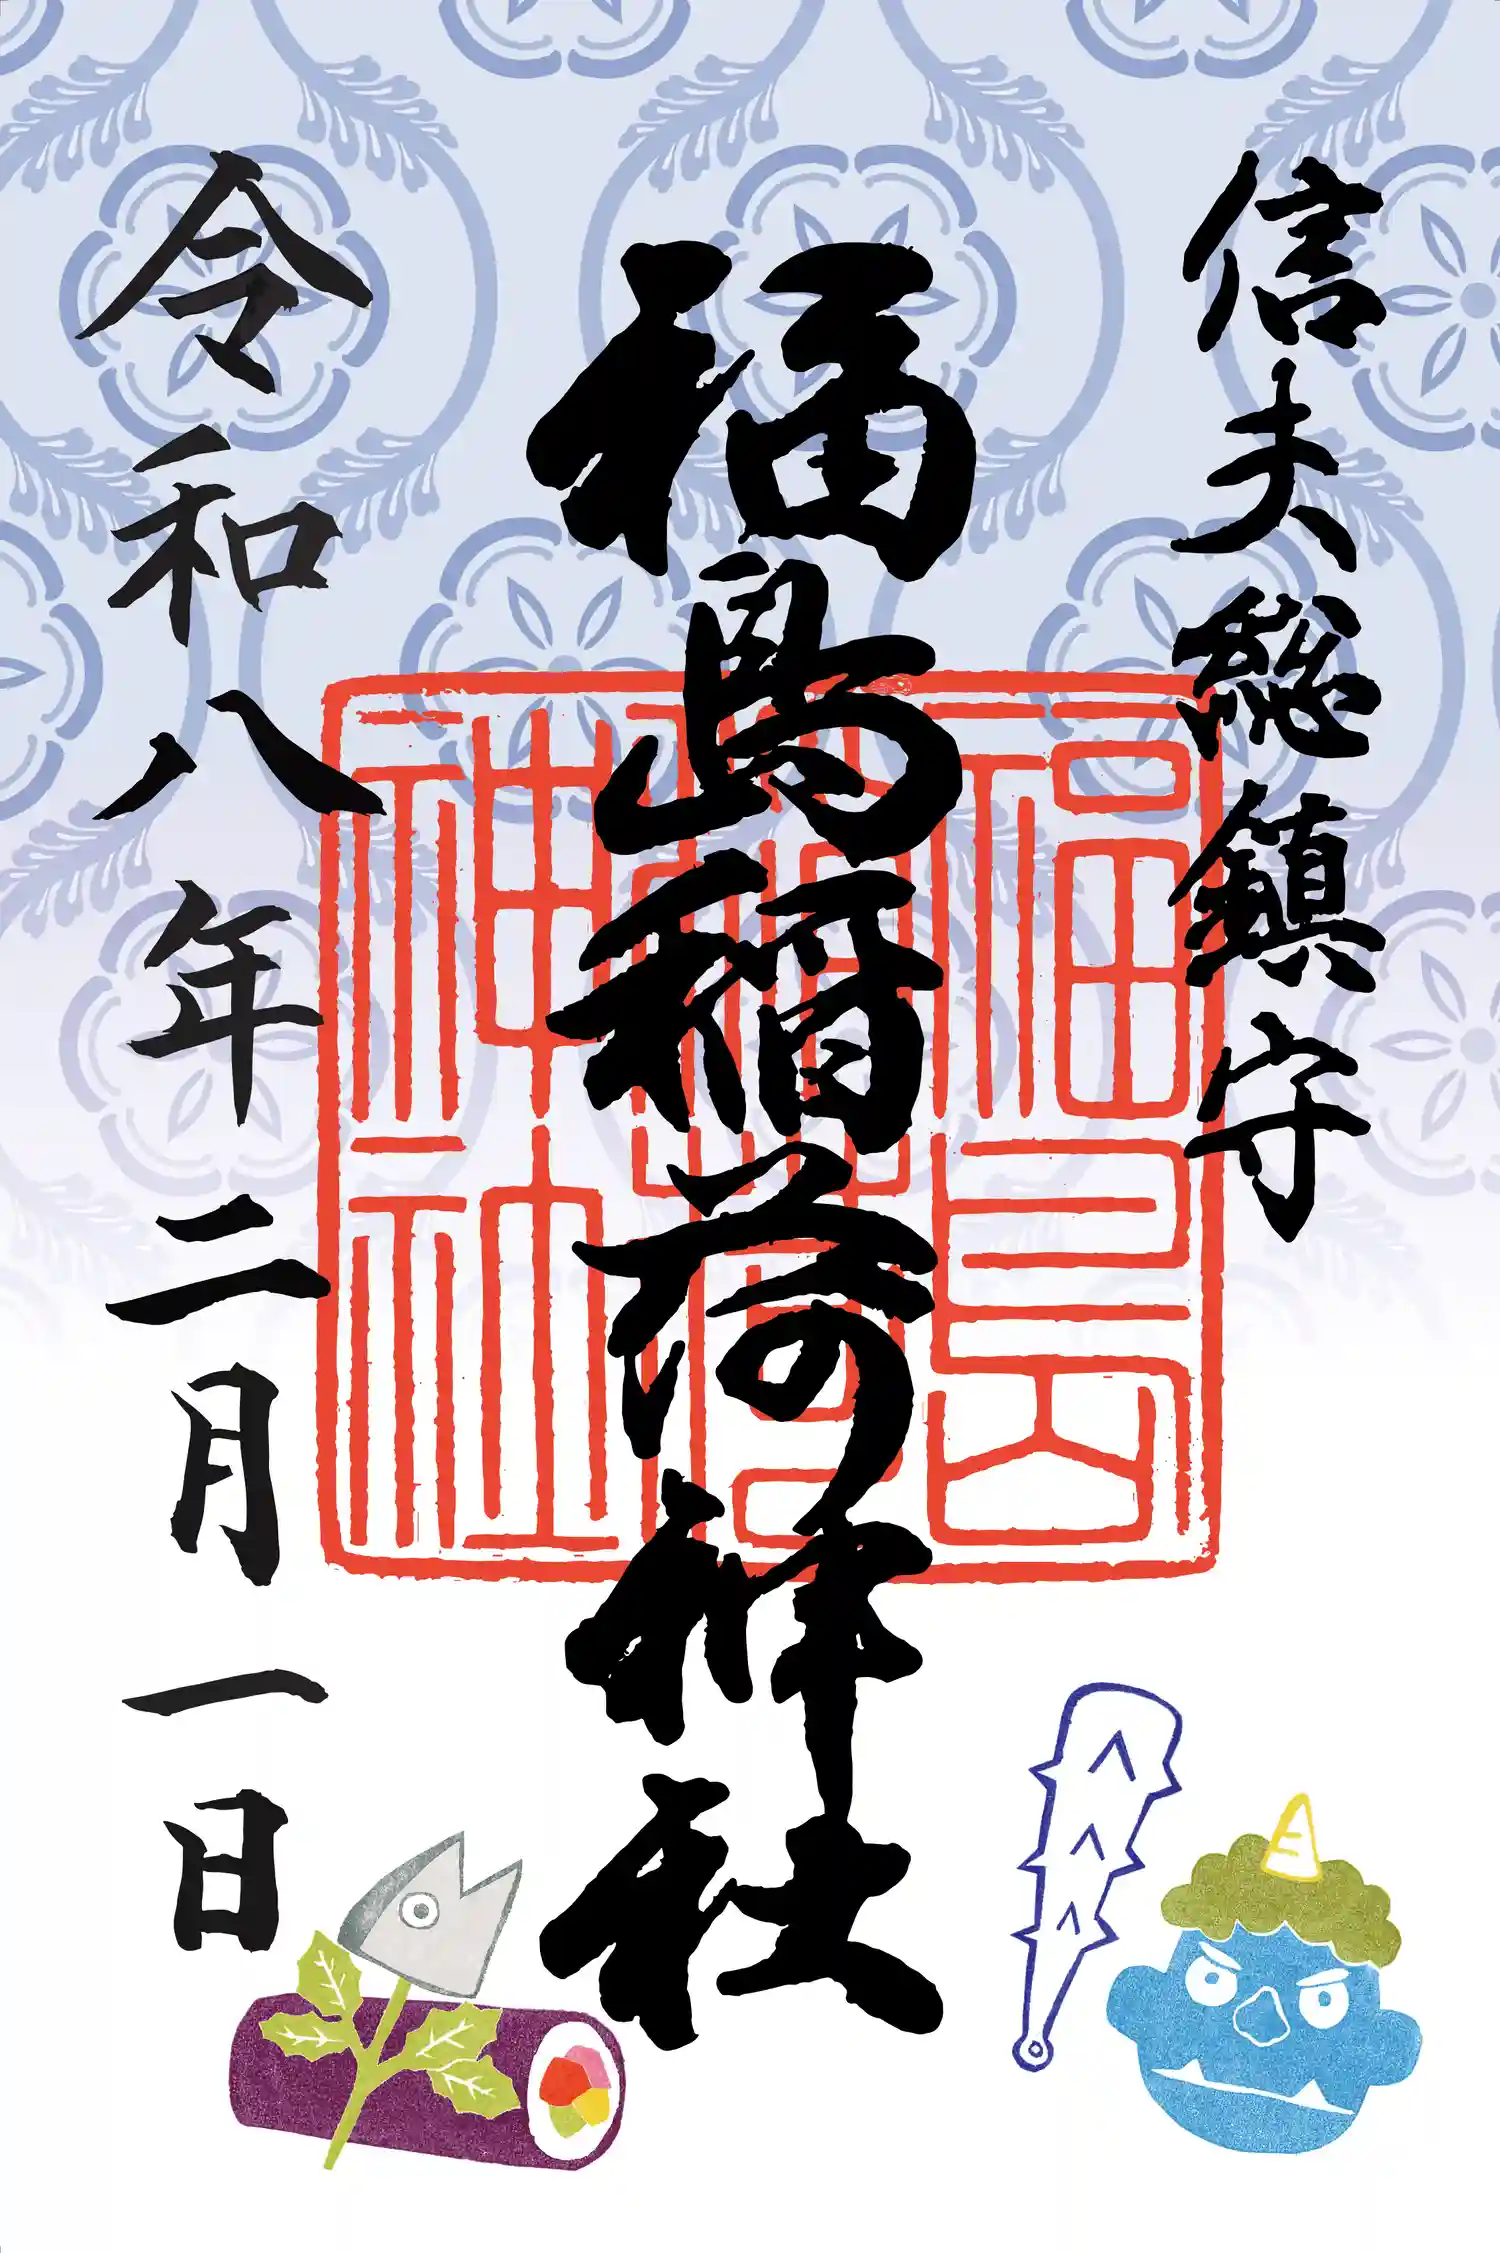 信夫総鎮守
福島稲荷神社
福島
稲荷
神社
令和八年二月一日